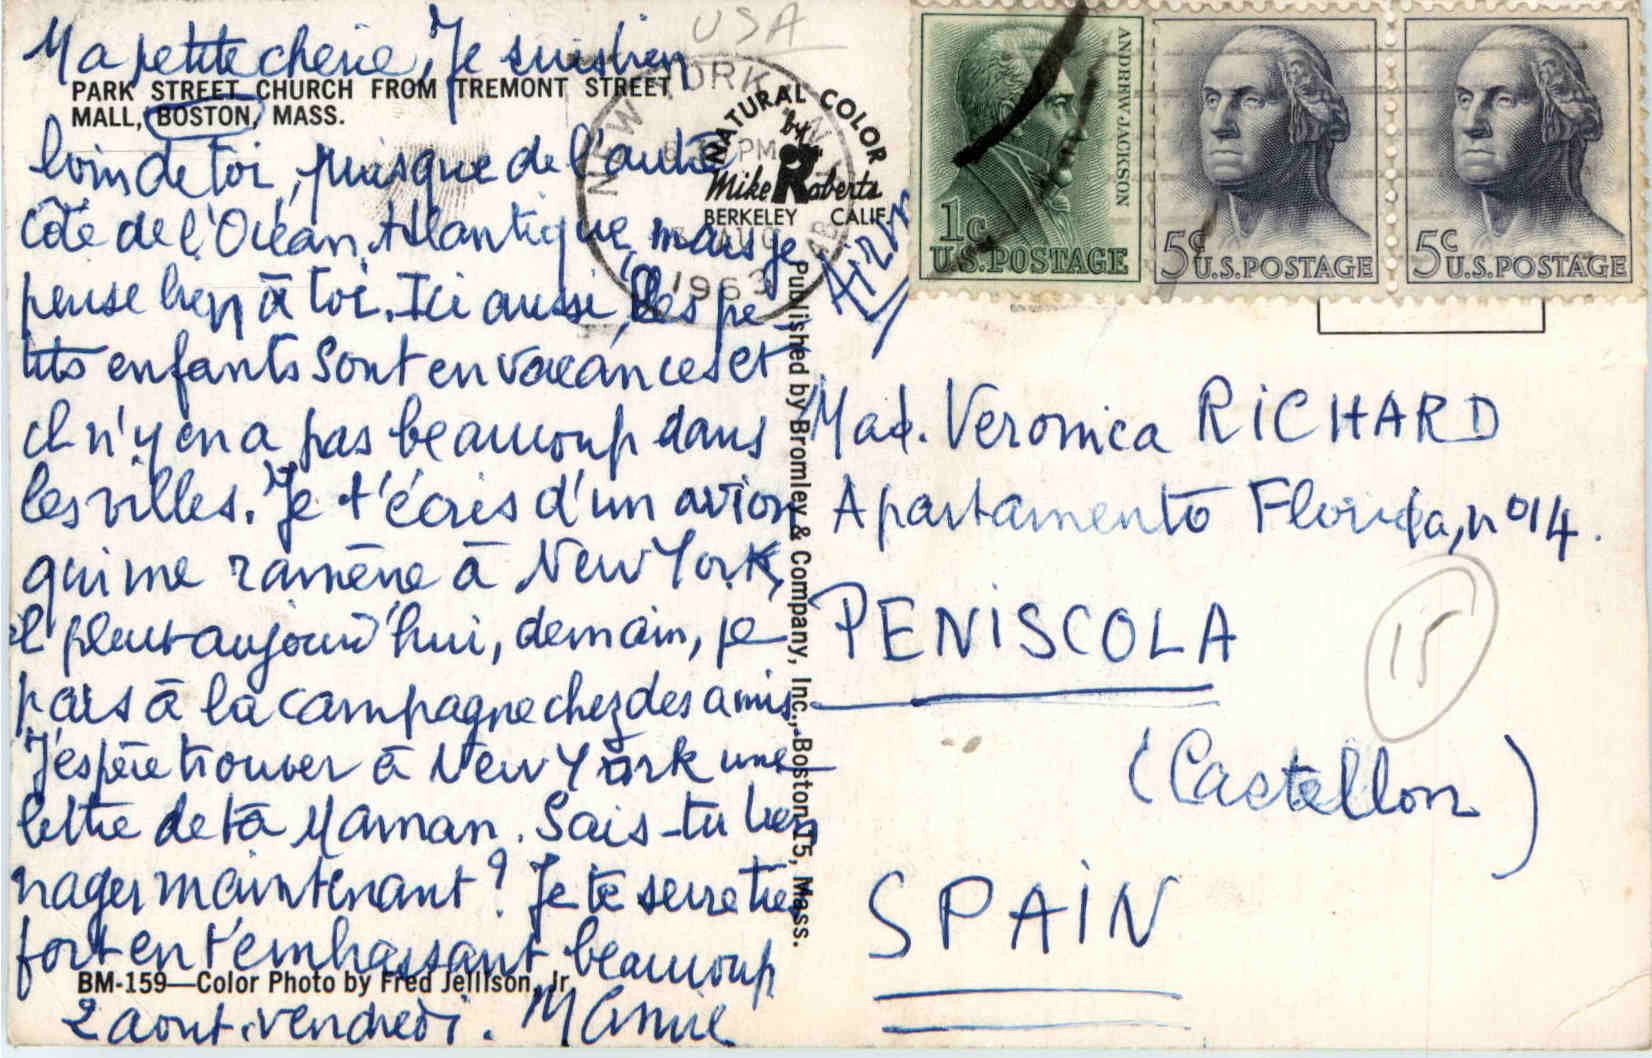 USA
Ma petite cherie, Je suis bien
PARK STREET CHURCH FROM TREMONT STREET
MALL, BOSTON, MASS.
loin de toi, puisque de l'autre
côte de l'Océan Atlantique, mais je
pense bien à toi. Ici aussi, les pe-
tits enfants sont en vacances et
il n'y en a pas beaucoup dans
les villes. Je t'écris d'un avion
qui me ramène à New York,
il pleut aujourd'hui, demain, je
pars à la campagne chez des amis.
J'espère trouver à New York une
lettre de ta Maman. Sais-tu bien
nager maintenant? Je te serre très
fort en t'embrassant beaucoup
BM-159—Color Photo by Fred Jellison, Jr.
2 aout. vendredi. Mamie
NEW YORK, N.Y.
PM
AUG
1963
NATURAL COLOR
by
Mike Roberts
BERKELEY CALIF.
Published by Bromley & Company, Inc., Boston 15, Mass.
ANDREW JACKSON
1c
U.S. POSTAGE
5c U.S. POSTAGE
5c U.S. POSTAGE
Mad. Veronica RICHARD
Apartamento Florida, nº 14.
PENISCOLA
15
(Castellon)
SPAIN